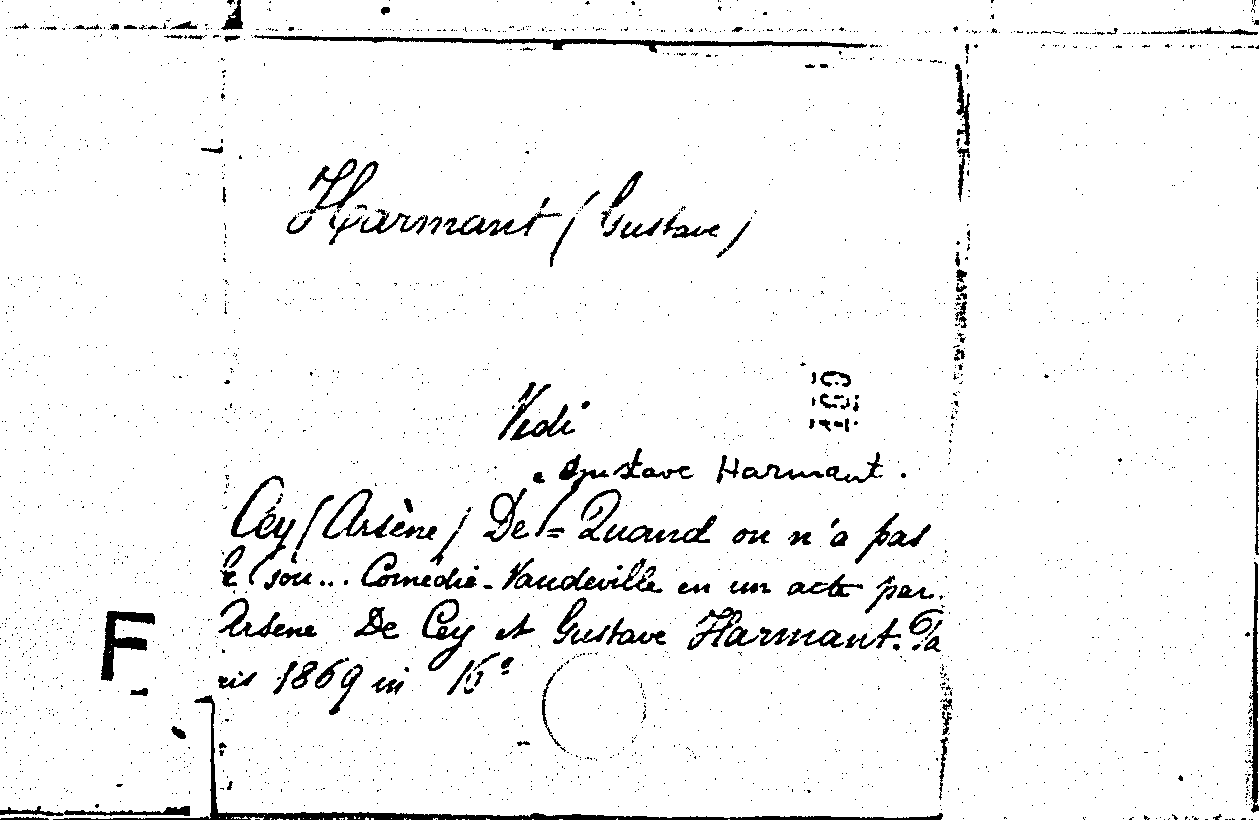 Harmant (Gustave)
Vedi
Gustave Harmant.
Cey (Arsène) De = Quand on n'a pas
le sou... Comédie-Vaudeville en un acte par
Arsène De Cey et Gustave Harmant. Pa
ris 1869 in 16°
F